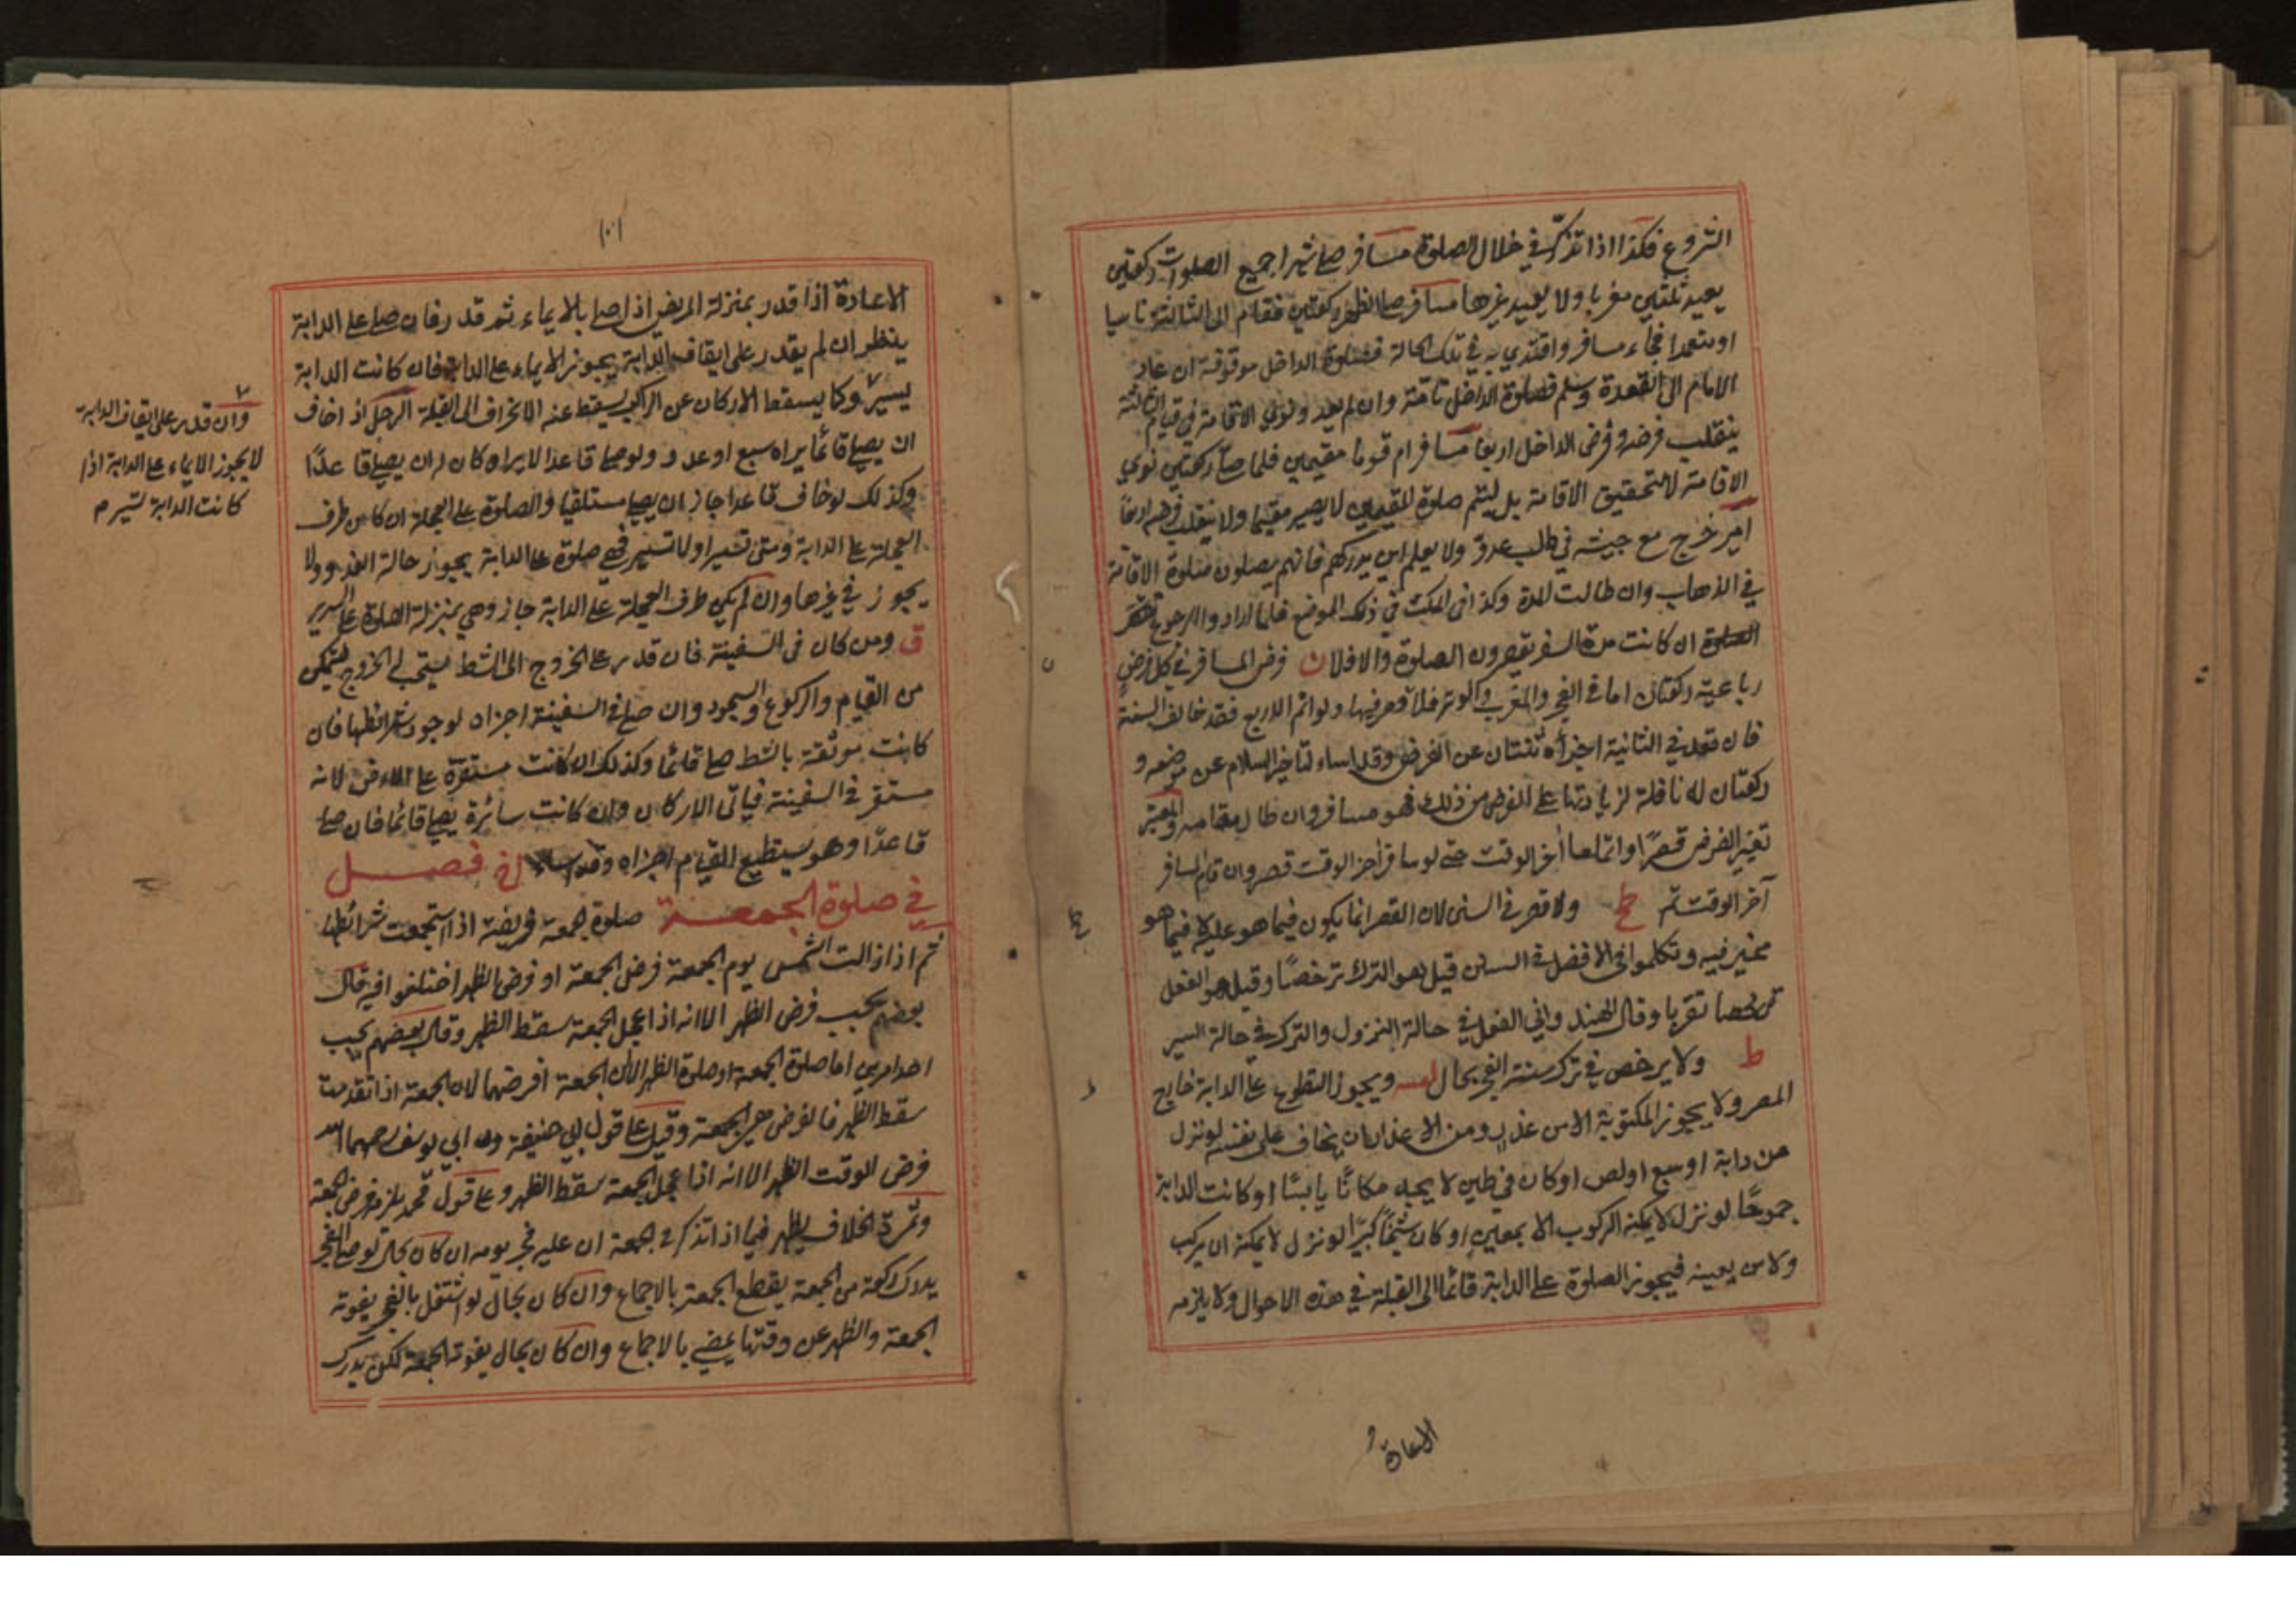 الشروع فكذا اذا تذكر في خلال الصلوة مسافر صلى شهرا جميع الصلوات ركعتين
يعيد ثلثين مغربا ولا يعيد غيرها مسافر صلى الظهر ركعتين فقام الى الثالثة ناسيا
او متعمدا فجاء مسافر واقتدي به في تلك الحالة فصلوة الداخل موقوفة ان عاد
الامام الى القعدة وسلم فصلوة الداخل تامة وان لم يعد ونوى الاقامة في قيام الثالثة
ينقلب فرضه وفرض الداخل اربعا مسافر ام قوما مقيمين فلما صلى ركعتين نوي
الاقامة لا لتحقيق الاقامة بل ليتم صلوة المقيمين لا يصير مقيما ولا ينقلب فرضهم اربعا
امير خرج مع جيشه في طلب عدو ولا يعلم اين يدركهم فانهم يصلون صلوة الاقامة
في الذهاب وان طالت المدة وكذا في المكث في ذلك الموضع فاما اذا ارادوا الرجوع
الصلوة ان كانت مدة السفر يقصرون الصلوة والا فلا ن فرض المسافر في كل فرض
رباعية ركعتان اما في الفجر والمغرب والوتر فلا قصر فيها ولو اتم الاربع فقد خالف السنة
فان قعد في الثانية اجزأه ثنتان عن الفرض وقد اساء لتاخير السلام عن موضعه و
ركعتان له نافلة لزيادتها على الفرض من ذلك فهو مسافر وان طال مقامه والمعتبر
تغير الفرض قصرا او اتماما اخر الوقت حتى لو سافر اخر الوقت قصر وان قام المسافر
آخر الوقت تم ولا قصر في السنن لان القصر انما يكون فيما هو عليه لا فيما هو
مخير فيه وتكلموا في الافضل في السنن قيل هو الترك ترخصا وقيل هو الفعل
تقربا وقال الهندواني الفعل في حالة النزول والترك في حالة السير
ط ولا يرخص في ترك سنة الفجر بحال ويجوز التطوع على الدابة خارج
المصر ولا يجوز المكتوبة الا من عذر ومن الاعذار ان يخاف على نفسه لو نزل
من دابة او سبع او لص او كان في طين لا يجد مكانا يابسا او كانت الدابة
جموحا لو نزل لا يمكنه الركوب الا بمعين او كان شيخا كبيرا لو نزل لا يمكنه ان يركب
ولا من يعينه فيجوز الصلوة على الدابة قائما الى القبلة في هذه الاحوال ولا يلزمه
الاعادة
١٠١
الاعادة اذا قدر بمنزلة المريض اذا صلى بالايماء ثم قدر فان صلى على الدابة
ينظر ان لم يقدر على ايقاف الدابة يجوز الايماء على الدابة فان كانت الدابة
يسير وكما يسقط الاركان عن الراكب يسقط عنه الانحراف الى القبلة الرجل اذا خاف
ان يصلي قائما يراه سبع او عدو ولو صلى قاعدا لا يراه كان له ان يصلي قاعدا
وكذلك لو خاف قاعدا جاز ان يصلي مستلقيا والصلوة على العجلة ان كان طرف
العجلة على الدابة ومتى تسير او لا تسير فهي صلوة على الدابة يجوز حالة العذر ولا
يجوز في غيرها وان لم يكن طرف العجلة على الدابة جاز وهي بمنزلة الصلوة على السرير
ق ومن كان في السفينة فان قدر على الخروج الى الشط يستحب له الخروج ليتمكن
من القيام والركوع والسجود وان صلى في السفينة اجزاه لوجود شرائطها فان
كانت موثقة بالشط صلى قائما وكذلك ان كانت مستقرة على الارض لانه
مستقر في السفينة فياتي الاركان وان كانت سائرة يصلي قائما فان صلى
قاعدا وهو يستطيع القيام اجزاه وقد اساء فصل
في صلوة الجمعة صلوة الجمعة فريضة اذا استجمعت شرائطها
ثم اذا زالت الشمس يوم الجمعة فرض الجمعة او فرض الظهر اختلفوا فيه قال
بعضهم يجب فرض الظهر الا انه اذا عجل الجمعة سقط الظهر وقال بعضهم يجب
احد امرين اما صلوة الجمعة او صلوة الظهر الا ان الجمعة افرضهما لان الجمعة اذا تقدمت
سقط الظهر فالفرض هي الجمعة وقيل على قول ابي حنيفة وابي يوسف رحمهما الله
فرض الوقت الظهر الا انه اذا عجل الجمعة سقط الظهر وعلى قول محمد يلزم فرض الجمعة
وثمرة الخلاف يظهر فيما اذا تذكر في الجمعة ان عليه فجر يومه ان كان بحال لو صلى الفجر
يدرك ركعة من الجمعة يقطع الجمعة بالاجماع وان كان بحال لو اشتغل بالفجر يفوته
الجمعة والظهر عن وقتها يمضي بالاجماع وان كان بحال يفوته الجمعة لكن يدرك
وان قدر على ايقاف الدابة
لا يجوز الايماء على الدابة اذا
كانت الدابة تسير